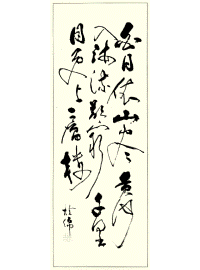 白日依山尽黄河
入海流欲窮千里
目更上一層樓